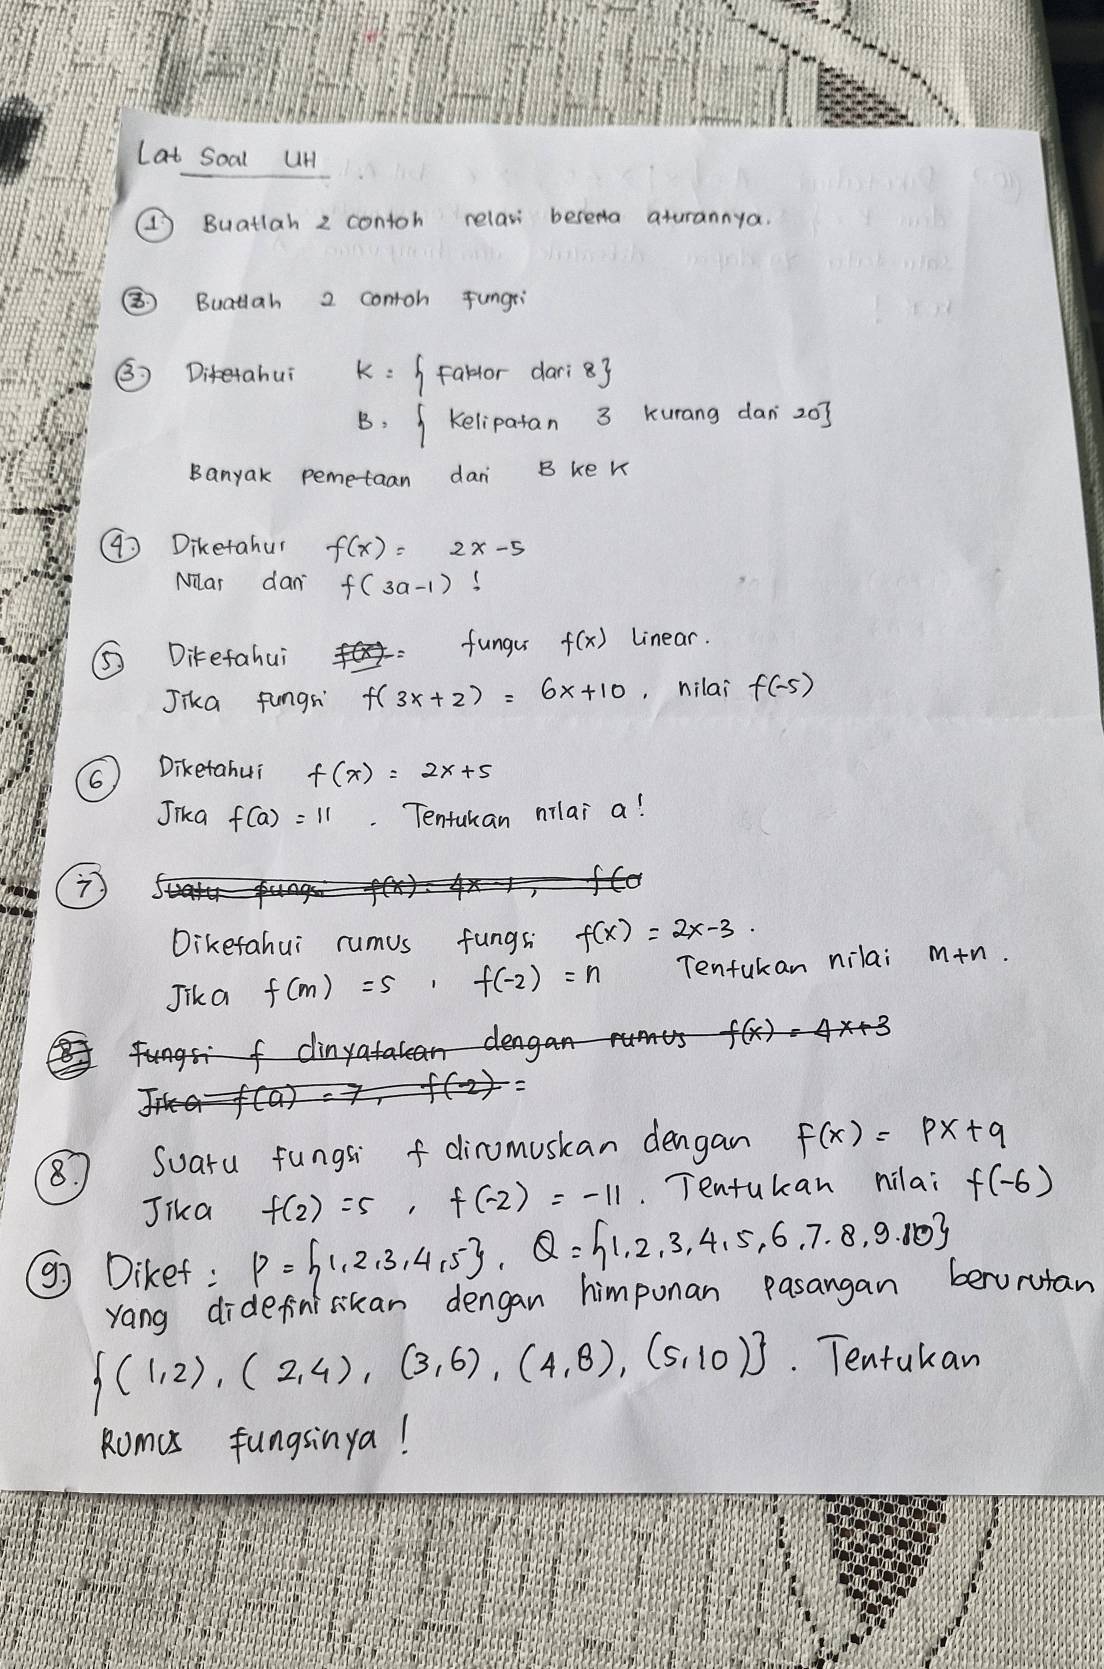 Lat Soal UH
1. Buatlah 2 contoh relasi beserta aturannya.
2. Buatlah 2 contoh Fungsi
3. Diketahui K = { Faktor dari 8 }
B = { Kelipatan 3 kurang dari 20 }
Banyak pemetaan dari B ke K
4. Diketahui f(x) = 2x - 5
Nilai dari f(3a-1) !
5. Diketahui f(x) = fungsi f(x) linear.
Jika fungsi f(3x+2) = 6x+10, nilai f(-5)
6 Diketahui f(x) = 2x+5
Jika f(a) = 11 . Tentukan nilai a!
7. Suatu fungsi f(x) = 4x - 1, f(a
Diketahui rumus fungsi f(x) = 2x-3.
Jika f(m) = 5 , f(-2) = n Tentukan nilai m+n.
8. Fungsi f dinyatakan dengan rumus f(x) = 4x+3
Jika f(a) = 7, f(-2) =
8.) Suatu fungsi f dirumuskan dengan f(x) = px+q
Jika f(2) = 5 , f(-2) = -11. Tentukan nilai f(-6)
9.) Diket : P = {1,2,3,4,5}, Q = {1,2,3,4,5,6,7,8,9,10}
yang didefinisikan dengan himpunan pasangan berurutan
{(1,2), (2,4), (3,6), (4,8), (5,10)}. Tentukan
Rumus fungsinya !